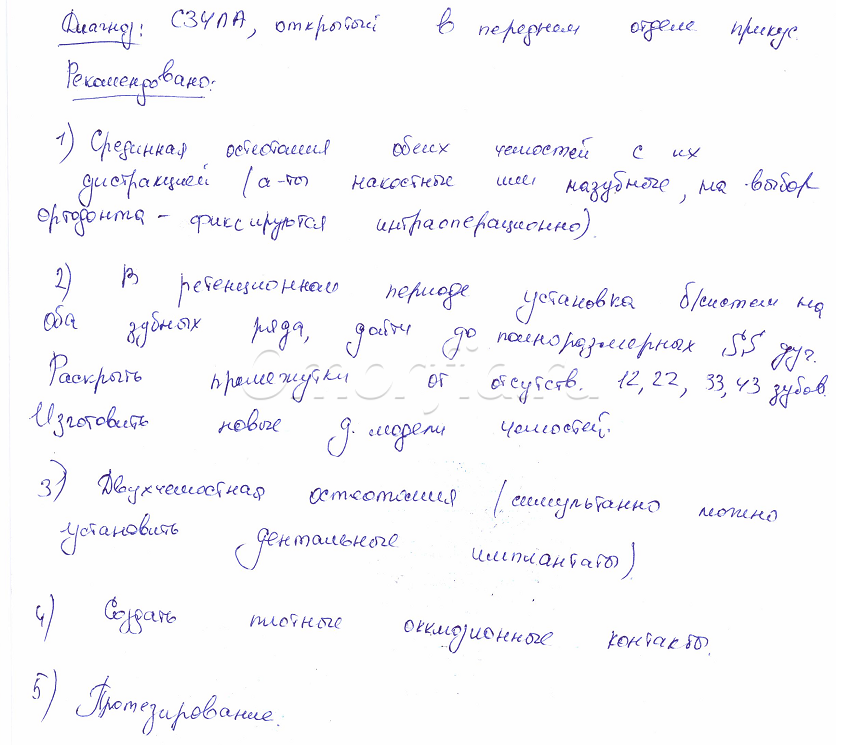 Диагноз: СЗЧЛА, открытый в переднем отделе прикус.
Рекомендовано:
1) Срединная остеотомия обеих челюстей с их
дистракцией (а-ты накостные или назубные, на выбор
ортодонта – фиксируются интраоперационно).
2) В ретенционном периоде установка б/систем на
оба зубных ряда, дойти до полноразмерных SS дуг.
Раскрыть промежутки от отсутств. 12, 22, 33, 43 зубов.
Изготовить новые д. модели челюстей.
3) Двухчелюстная остеотомия (симультанно можно
установить дентальные имплантаты)
4) Создать плотные окклюзионные контакты.
5) Протезирование.